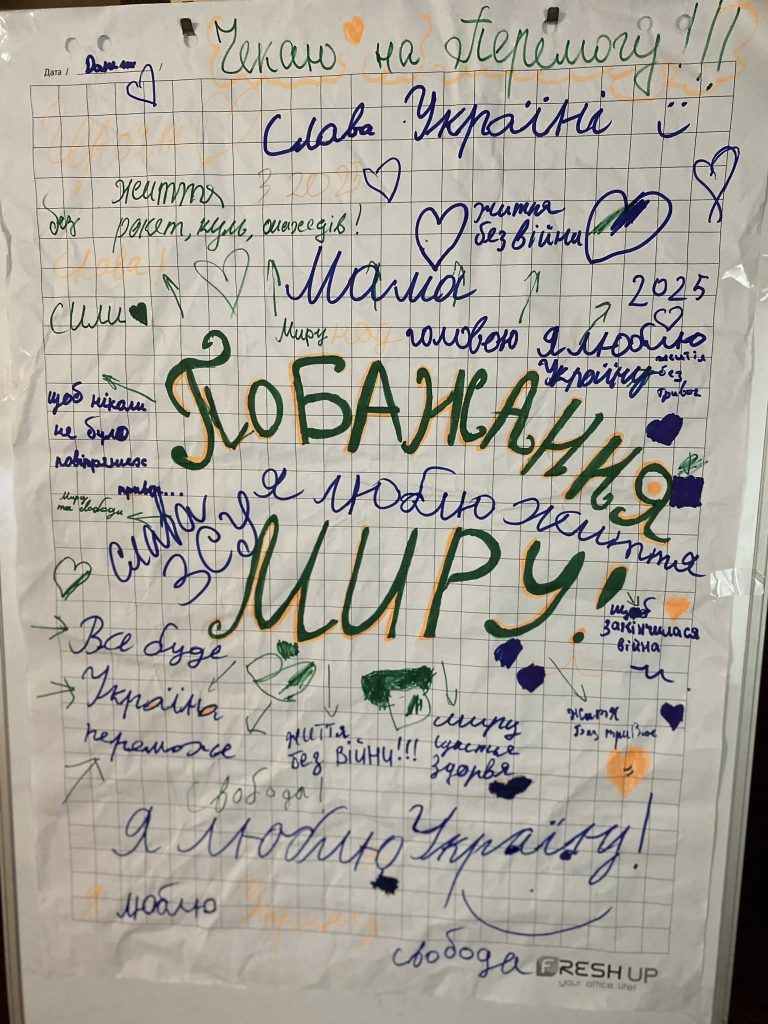 Чекаю на Перемогу!!!
Дата /
Слава Україні
життя
без ракет, куль,
життя
без війни
Слава!
Мама
2025
Сили
Миру над головою
Я люблю
Україну
життя
без
тривог
ПОБАЖАННЯ
щоб ніколи
не було
Миру
та свободи
я люблю життя
Слава
ЗСУ
МИРУ!
щоб
закінчилася
війна
Все буде
Україна
переможе
життя
без війни!!!
миру
щастя
здоровя
життя
без тривог
Свобода!
Я люблю Україну!
Я люблю Україну
свобода
FRESH UP
your office life!